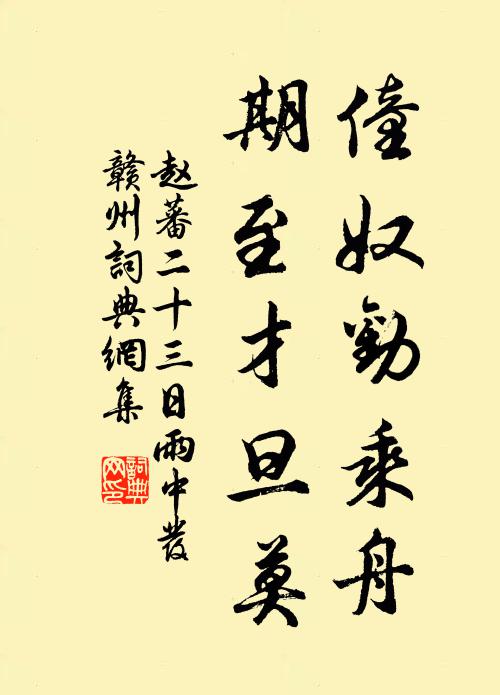 僮奴勸乘舟
期至才旦莫
赵蕃二十三日雨中發
贛州詞典網集
詞典
网印